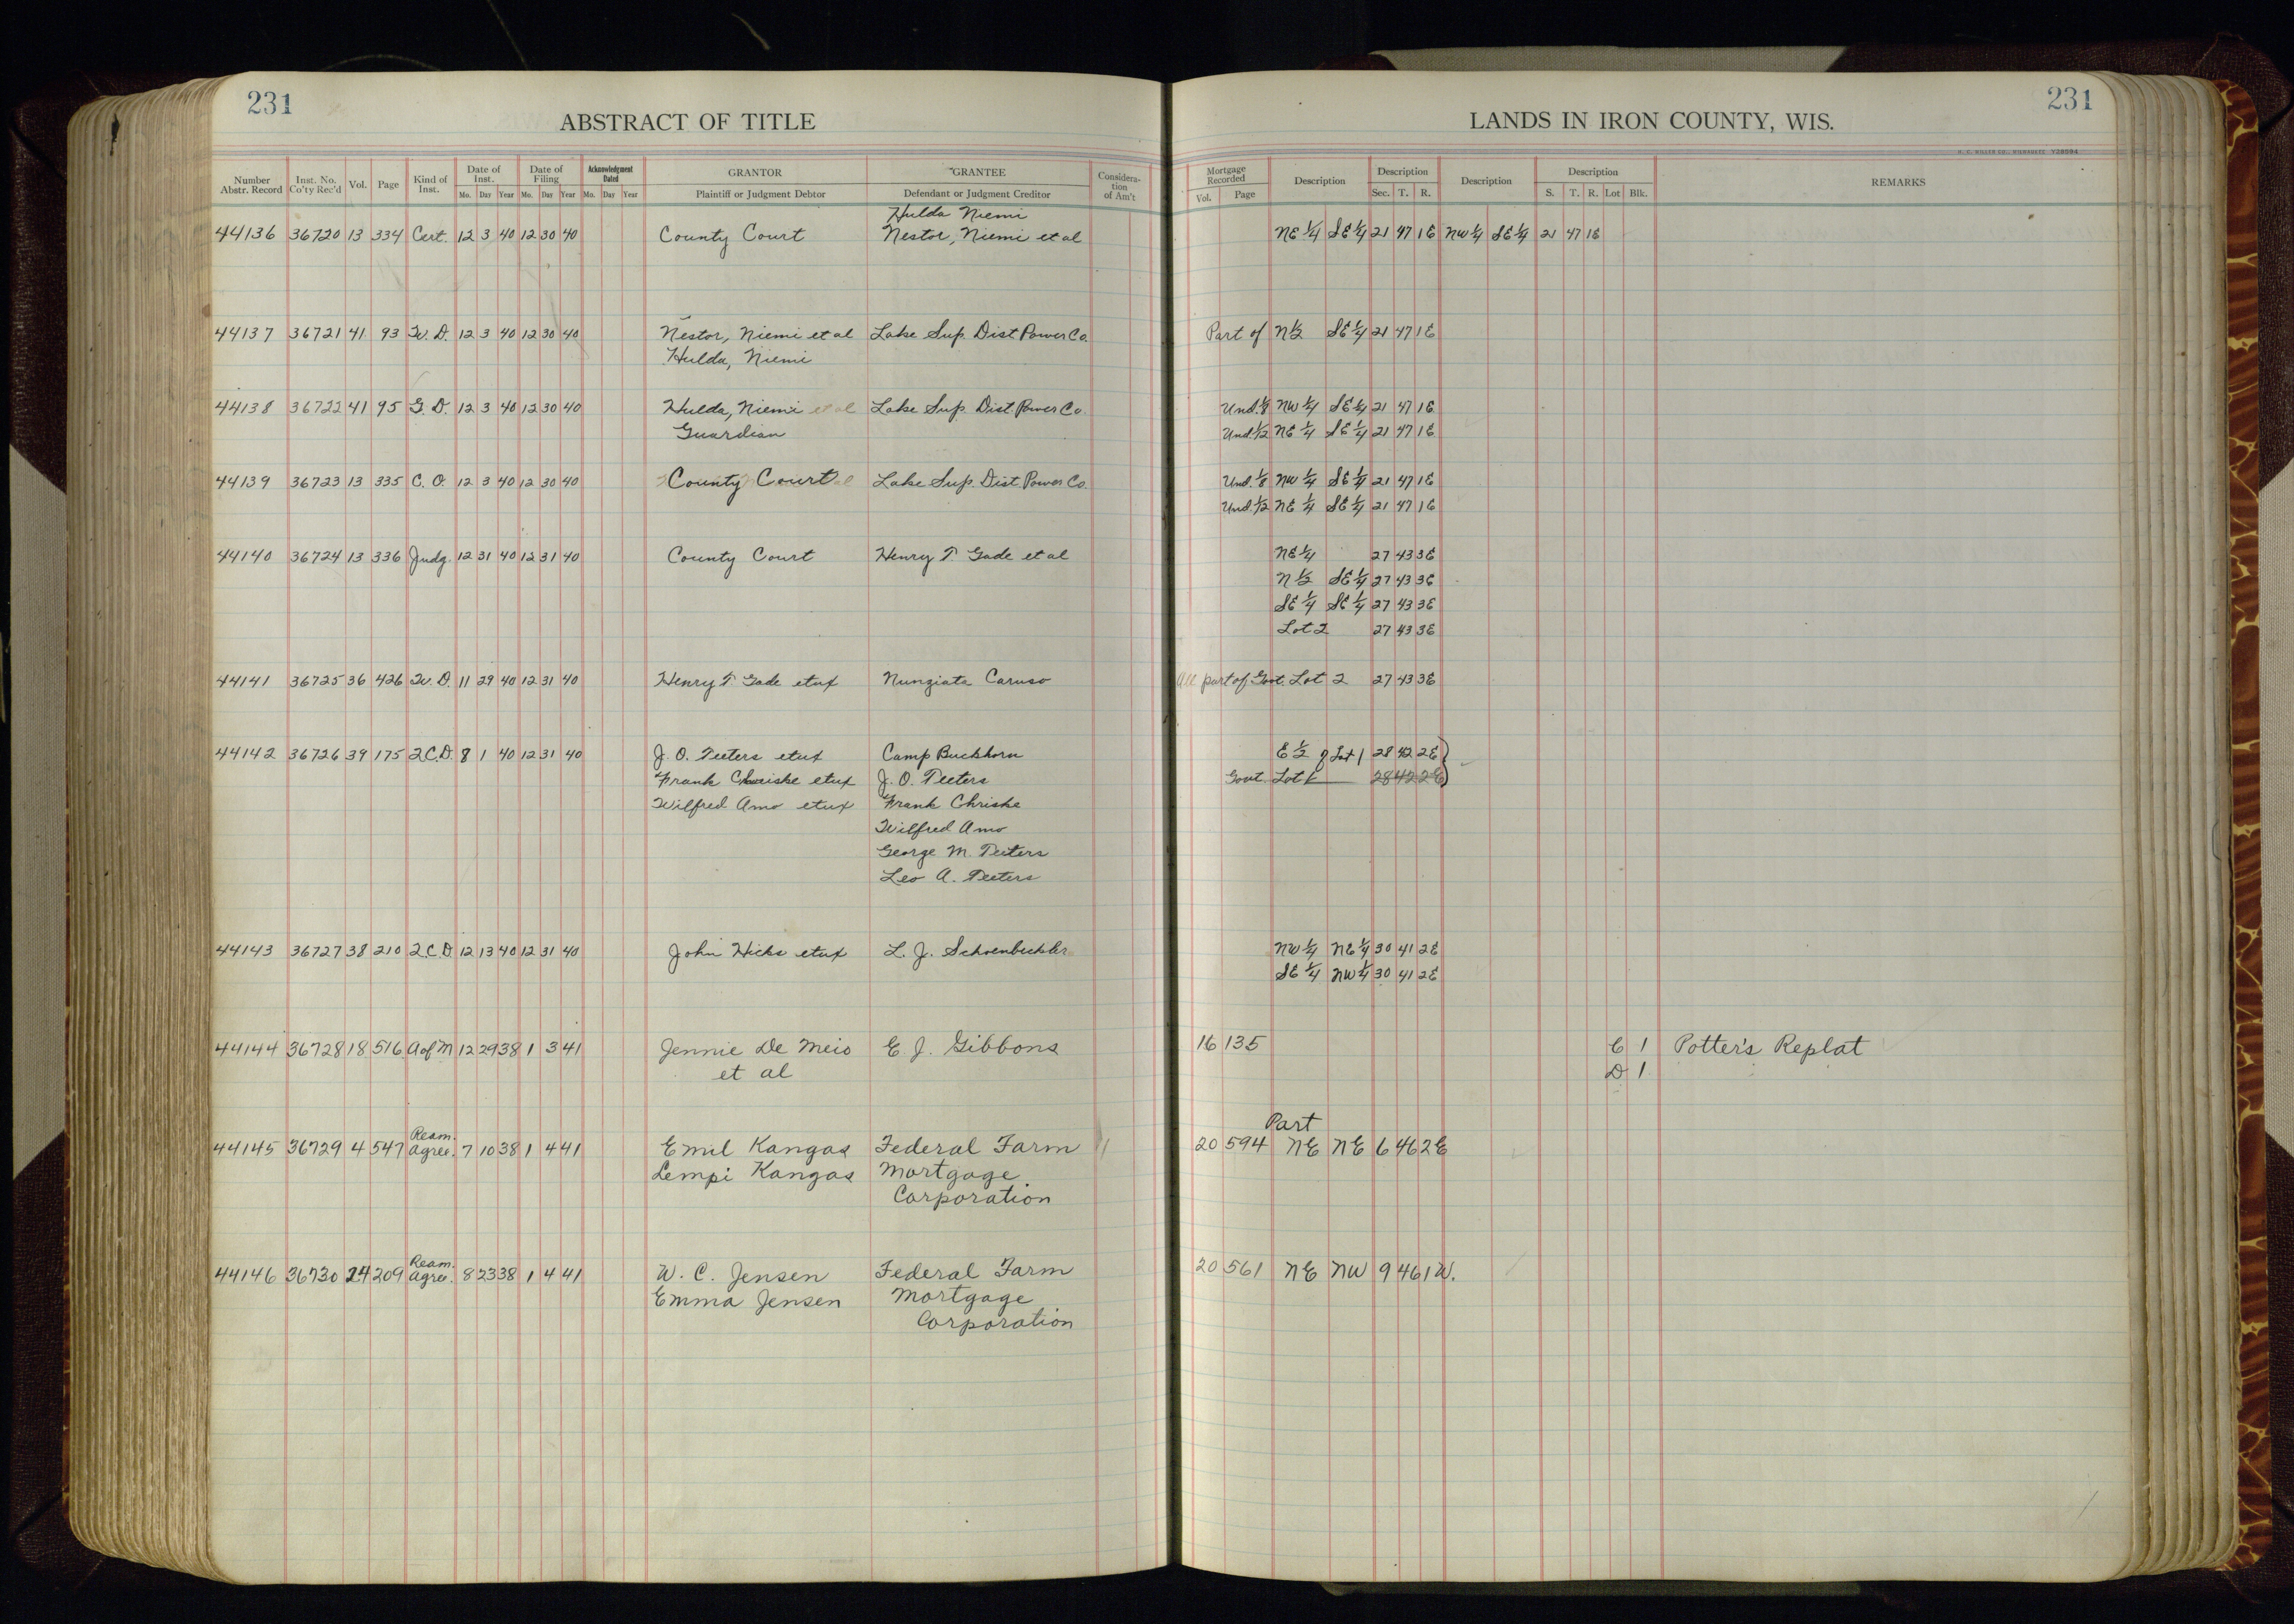 231
ABSTRACT OF TITLE
LANDS IN IRON COUNTY, WIS.
231
H. C. MILLER CO., MILWAUKEE V38594
Number Abstr. Record Inst. No. Co'ty Rec'd Vol. Page Kind of Inst. Date of Inst. Mo. Day Year Date of Filing Mo. Day Year Acknowledgment Dated Mo. Day Year GRANTOR Plaintiff or Judgment Debtor GRANTEE Defendant or Judgment Creditor Considera-tion of Am't Mortgage Recorded Vol. Page Description Description Sec. T. R. Description Description S. T. R. Lot Blk. REMARKS
Hulda Niemi
44136 36720 13 334 Cert. 12 3 40 12 30 40 County Court Nestor, Niemi et al NE 1/4 SE 1/4 21 47 1E NW 1/4 SE 1/4 21 47 1E
44137 36721 41 93 W. D. 12 3 40 12 30 40 Nestor, Niemi et al Lake Sup. Dist. Power Co. Part of N 1/2 SE 1/4 21 47 1E
Hulda, Niemi
44138 36722 41 95 G. D. 12 3 40 12 30 40 Hulda, Niemi et al Lake Sup. Dist. Power Co. Und. 1/8 NW 1/4 SE 1/4 21 47 1E
Guardian Und. 1/12 NE 1/4 SE 1/4 21 47 1E
44139 36723 13 335 C. O. 12 3 40 12 30 40 County Court Lake Sup. Dist. Power Co. Und. 1/8 NW 1/4 SE 1/4 21 47 1E
Und. 1/12 NE 1/4 SE 1/4 21 47 1E
44140 36724 13 336 Judg. 12 31 40 12 31 40 County Court Henry T. Gade et al NE 1/4 27 43 3E
N 1/2 SE 1/4 27 43 3E
SE 1/4 SE 1/4 27 43 3E
Lot 2 27 43 3E
44141 36725 36 426 W. D. 11 29 40 12 31 40 Henry T. Gade etux Nunziata Caruso All part of Govt. Lot 2 27 43 3E
44142 36726 39 175 2.C.D. 8 1 40 12 31 40 J. O. Peeters etux Camp Buckhorn E 1/2 of Lot 1 28 42 2E
Frank Chriske etux J. O. Peeters Govt Lot 1 28 42 2E
Wilfred Amo etux Frank Chriske
Wilfred Amo
George M. Peeters
Leo A. Peeters
44143 36727 38 210 2.C.D. 12 13 40 12 31 40 John Hicks etux L. J. Schoenbechler NW 1/4 NE 1/4 30 41 2E
SE 1/4 NW 1/4 30 41 2E
44144 36728 18 516 A of M 12 29 38 1 3 41 Jennie De Meio E. J. Gibbons 16 135 C 1 Potter's Replat
et al D 1
Ream. Part
44145 36729 4 547 Agree. 7 10 38 1 4 41 Emil Kangas Federal Farm 20 594 NE NE 6 46 2E
Lempi Kangas Mortgage
Corporation
Ream.
44146 36730 24 209 Agree. 8 23 38 1 4 41 W. C. Jensen Federal Farm 20 561 NE NW 9 46 1W.
Emma Jensen Mortgage
Corporation